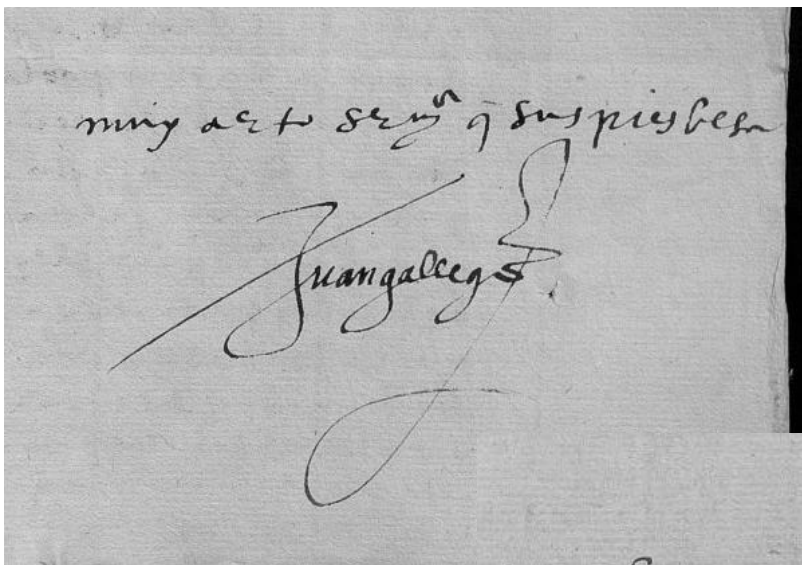 muy acto seruor q̃ sus pies besa
Juan gallego